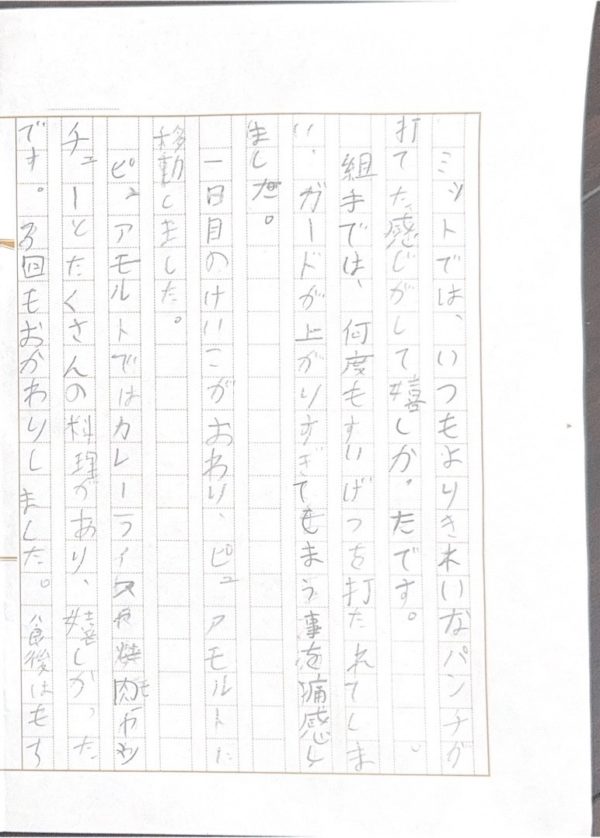 ミットでは、いつもよりきれいなパンチが
打てた感じがして嬉しかったです。
組手では、何度もすいげつを打たれてしま
い、ガードが上がりすぎてしまう事を痛感し
ました。
一日目のけいこがおわり、ピュアモルトに
移動しました。
ピュアモルトではカレーライスや焼肉やシ
チューとたくさんの料理があり、嬉しかった
です。3回もおかわりしました。食後はもち